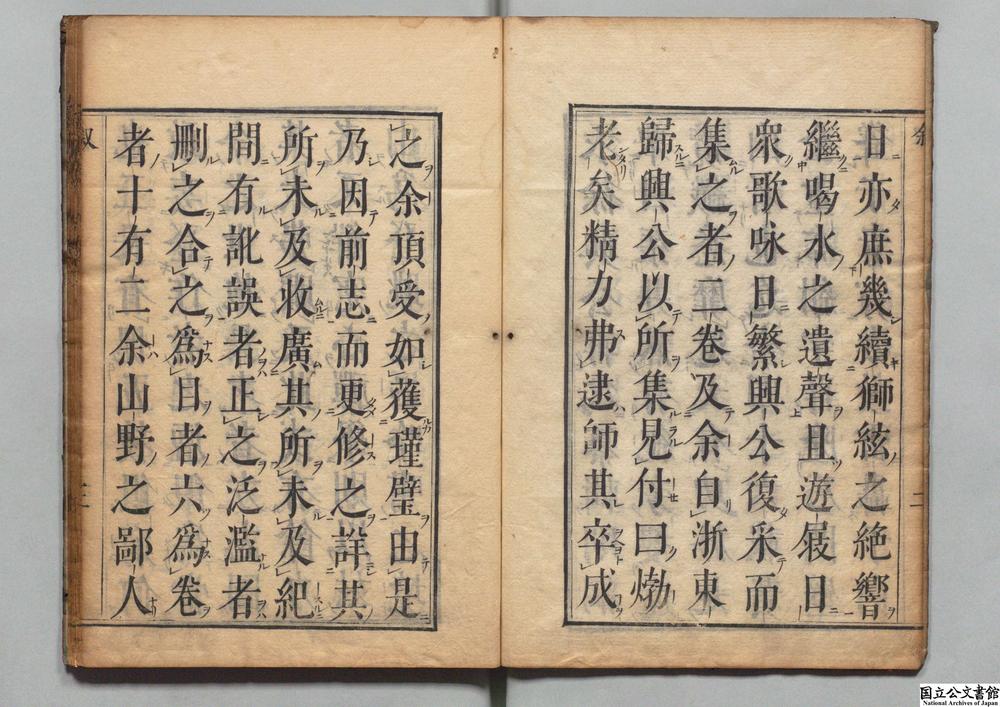 日亦庶幾續獅絃之絶響
繼喝水之遺聲且遊屐日
衆歌咏日繁興公復采而
集之者二卷及余自浙東
歸興公以所集見付曰㷟
老矣精力弗逮師其卒成
之余頂受如獲瑾璧由是
乃因前志而更修之詳其
所未及收廣其所未及紀
間有訛誤者正之泛濫者
刪之合之爲目者六爲卷
者十有二余山野之鄙人
叙
二
叙
三
国立公文書館
National Archives of Japan